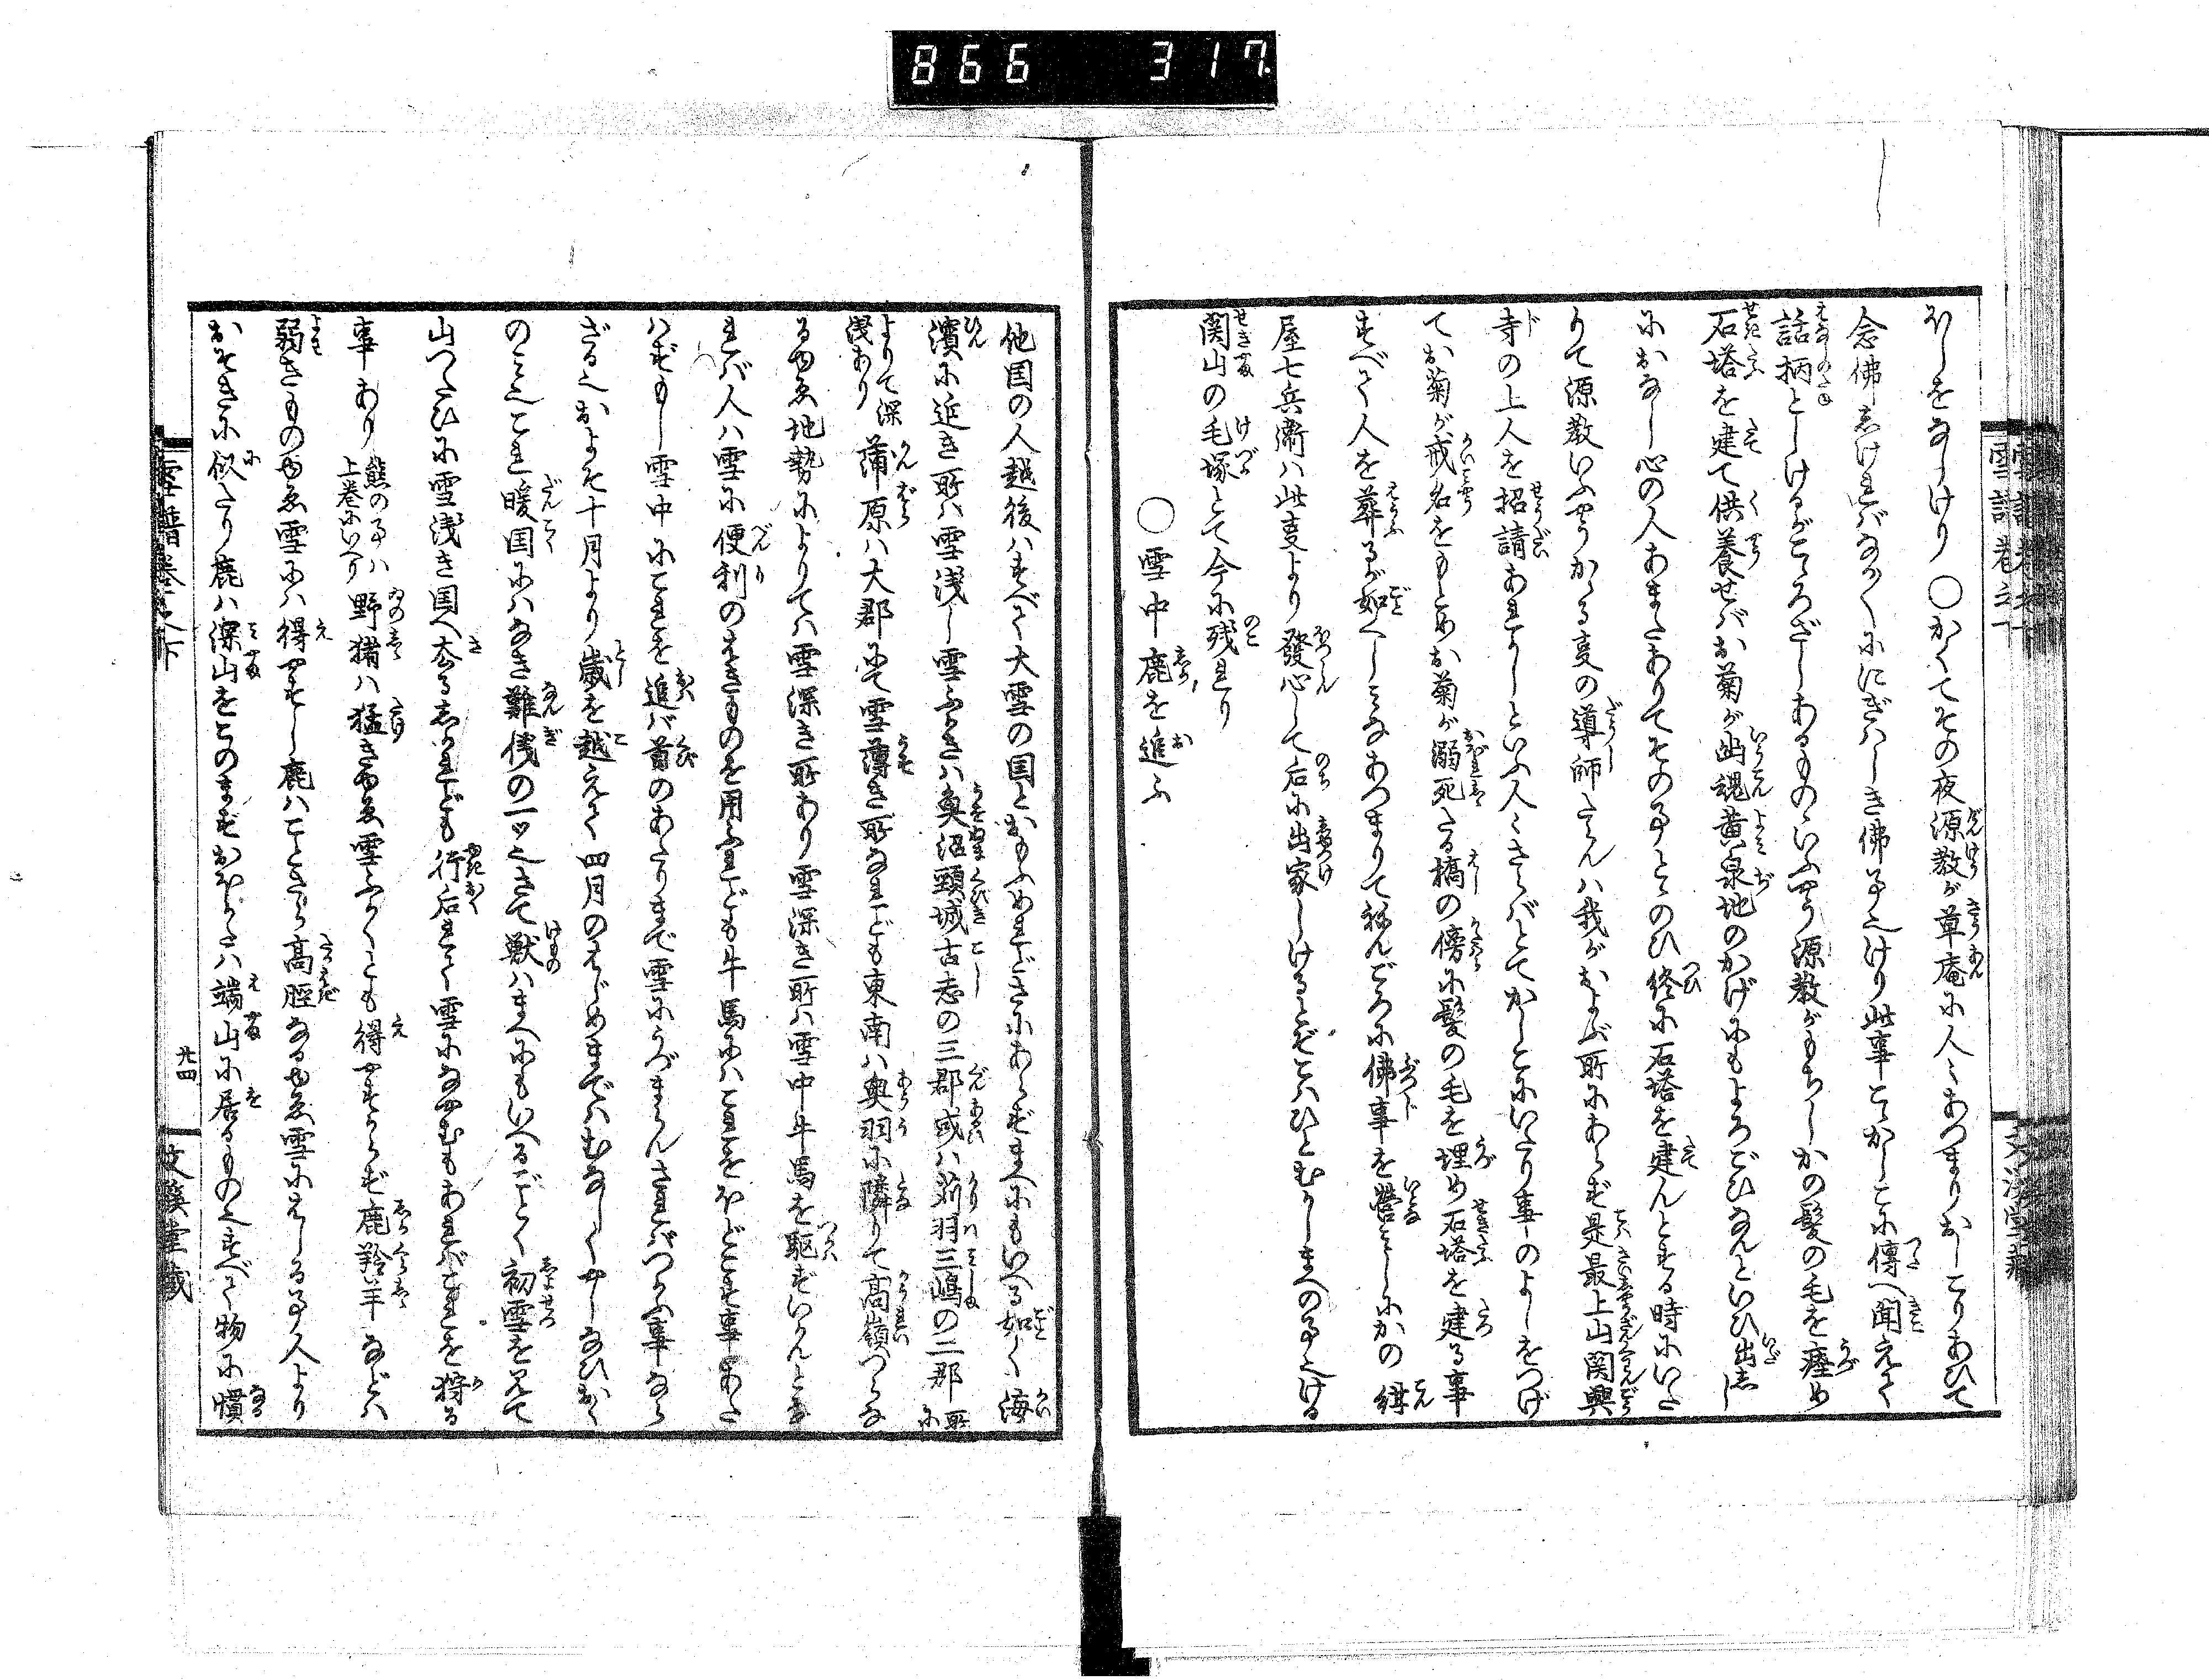 866 317
ほしをなしけり ○かくてその夜源教が草庵に人々あつまりおしこりあひて
念佛しけれバなか〳〵ににぎはしき佛事也けり此事こゝかしこに傳へ聞えて
話柄としけるがこゝろざしあるものゝいふやう源教がもちしかの髪の毛を瘞め
石塔を建て供養せバお菊が幽魂黄泉地のかげにもよろこびなんといひ出し
におなし心の人あまたありてその事とゝのひ終に石塔を建んとする時にいた
りて源教いふやうかゝる事の導師たらんハ我がおよぶ所にあらず是最上山関興
寺の上人を招請あれかしといふ人々さらバとてかしこにいたり事のよしをつげ
てお菊が戒名をもとめお菊が溺死たる橋の傍に髪の毛を埋め石塔を建る事
すべて人を葬るが如くしみなあつまりてねんごろに佛事を營しとぞかの紺
屋七兵衛ハ此事より發心して后に出家しけるとぞこハひとむかしまへの事也ける
関山の毛塚とて今に残れり
○雪中鹿を追ふ
他国の人越後ハすべて大雪の国とおもふめれどさにあらずまへにもいへる如く海
濱に近き所ハ雪浅し雪ふかきハ魚沼頸城古志の三郡或ハ苅羽三嶋の二郡 所に
よりて深浅あり 蒲原ハ大郡にて雪薄き所なれども東南ハ奥羽に隣りて高嶺つらな
るゆゑ地勢によりてハ雪深き所あり雪深き所ハ雪中牛馬を駆ずいかんとな
れバ人ハ雪に便利のはきものを用ふれども牛馬にハこれをほどこす事あた
ハずもし雪中にこれを追バ首のあたりまで雪にうづまらんさればつかふ事なら
ざる也およそ十月より歳を越えて四月のはじめまでハむなしくやしなひおく
のミ也これ暖国にハなき難儀の一ツ也さて獣ハまへにもいへるごとく初雪を見て
山つたひに雪浅き国へ去るしかれども行后れて雪になやむもあれバこれを狩る
事あり 熊の事ハ上巻にいへり 野猪ハ猛きゆゑ雪ふかくとも得やすからず鹿羚羊などハ
弱きものゆゑ雪にハ得やすし鹿ハことさら高脛なるゆゑ雪にはしる事人より
おそきに似たり鹿ハ深山をこのまずおほかたハ端山に居るもの也すべて物に慣
雪譜巻之下
廿四
文溪堂藏